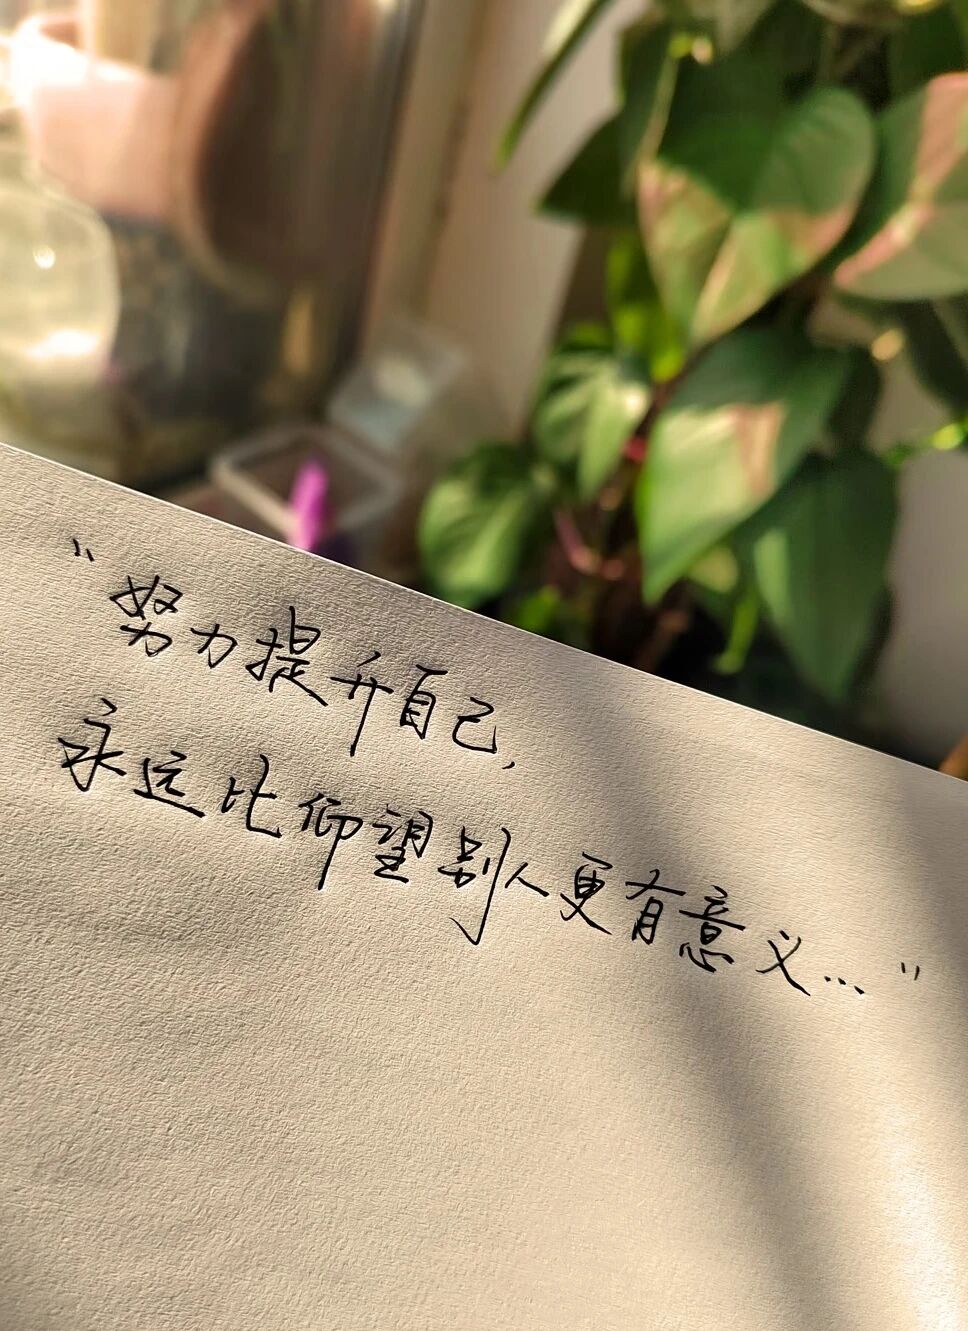 “努力提升自己，
永远比仰望别人更有意义…”